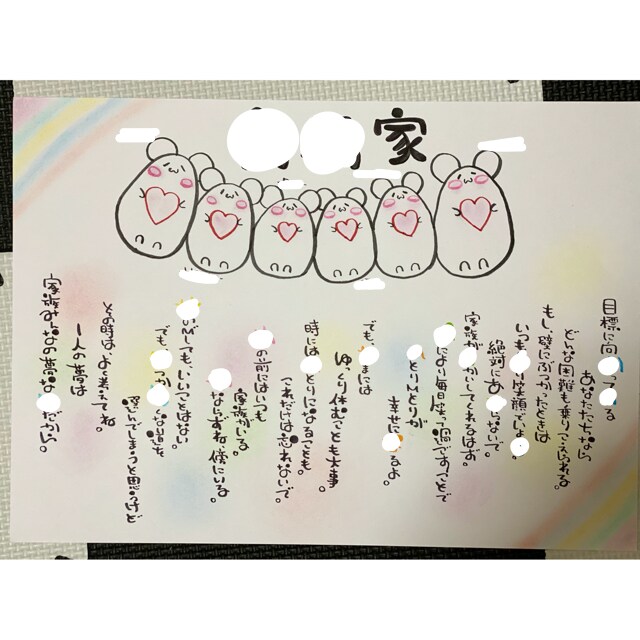 家
目標に向 る
あなたたちなら
どんな困難も乗りこえられる。
もし、壁にぶつかったときは
いつも 笑顔でいよ 。
絶対にあ ないで。
家族が かしてくれるはず。
により毎日笑って過ごすことで
とりひとりが
幸せに るよ。
でも、 まには
ゆっくり休むことも大事。
時には とりになることも。
これだけは忘れないで。
の前にはいつも
家族がいる。
ならずね、傍にいる。
いをしても、いいことはない。
でも、 つか な道を
選んでしまうと思うけど
その時はよく考えてね。
一人の夢は
家族みんなの夢な だから。